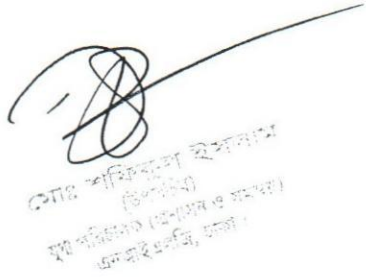 মোঃ শফিকুল ইসলাম
(উপসচিব)
যুগ্ম পরিচালক (প্রশাসন ও সমন্বয়)
এনআইএলজি, ঢাকা।